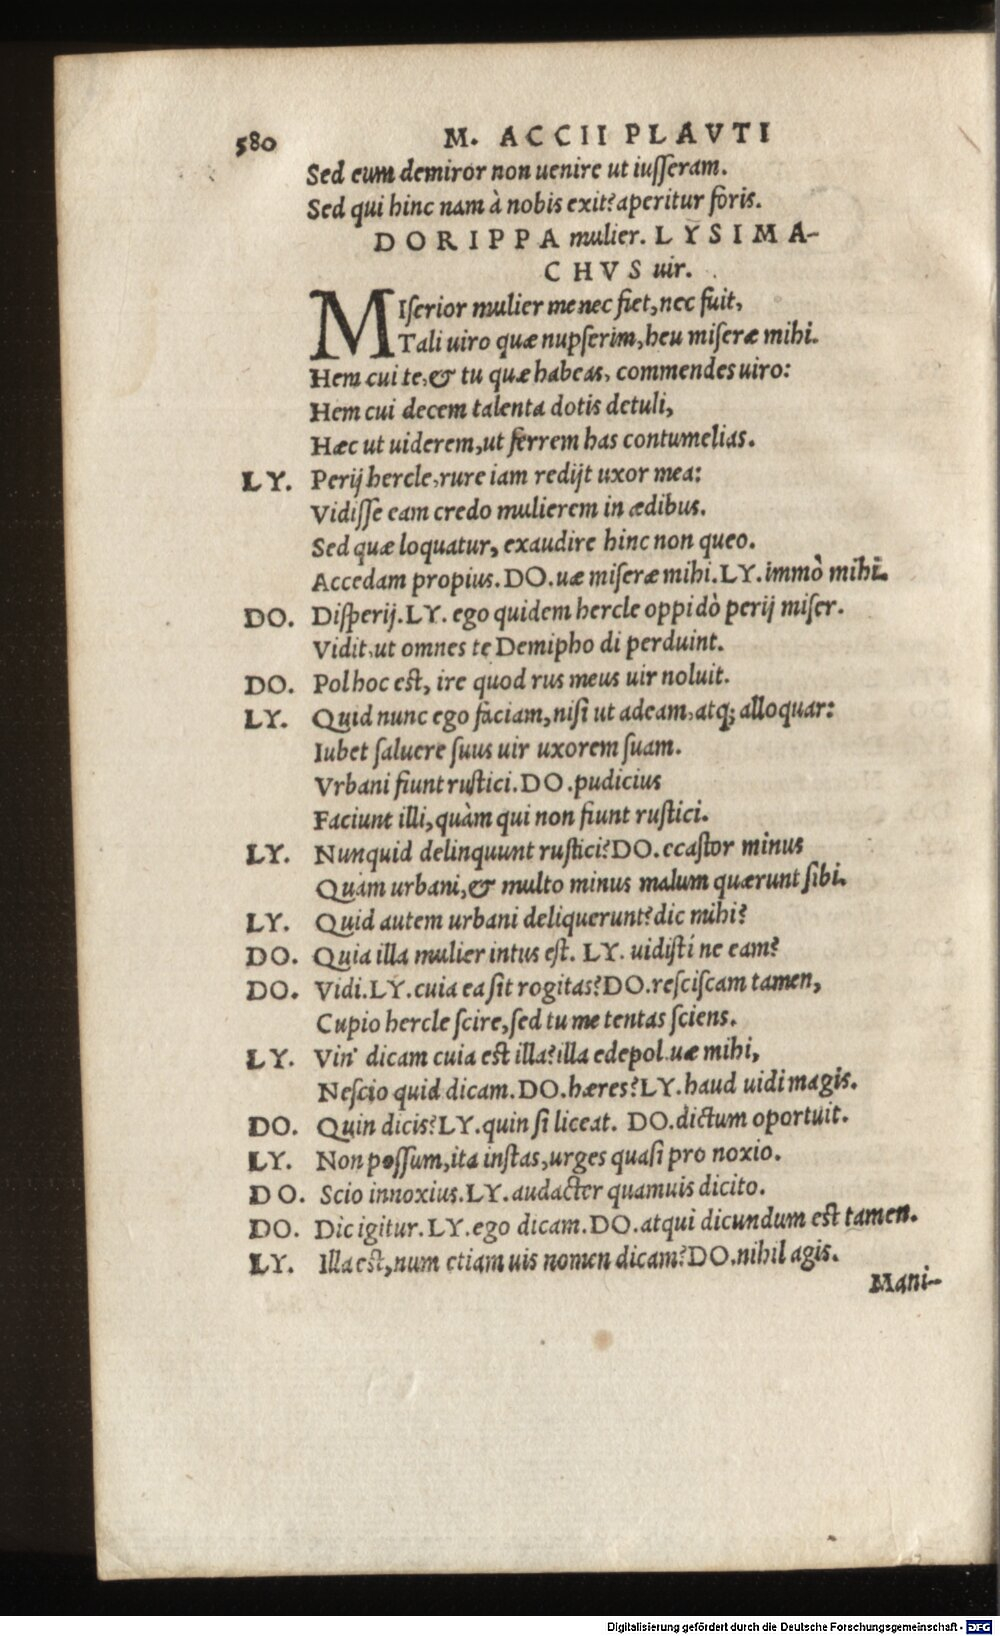 580 M. ACCII PLAVTI
Sed eum demiror non uenire ut iusseram.
Sed qui hinc nam à nobis exit? aperitur foris.
DORIPPA mulier. LYSIMA-
CHVS uir.
MIserior mulier me nec fiet, nec fuit,
Tali uiro quæ nupserim, heu miseræ mihi.
Hem cui te, & tu quæ habeas, commendes uiro:
Hem cui decem talenta dotis detuli,
Hæc ut uiderem, ut ferrem has contumelias.
LY. Perij hercle, rure iam redijt uxor mea:
Vidisse eam credo mulierem in ædibus.
Sed quæ loquatur, exaudire hinc non queo.
Accedam propius. DO. uæ miseræ mihi. LY. immò mihi.
DO. Disperij. LY. ego quidem hercle oppidò perij miser.
Vidit, ut omnes te Demipho di perduint.
DO. Pol hoc est, ire quod rus meus uir noluit.
LY. Quid nunc ego faciam, nisi ut adeam, atq; alloquar:
Iubet saluere suus uir uxorem suam.
Vrbani fiunt rustici. DO. pudicius
Faciunt illi, quàm qui non fiunt rustici.
LY. Nunquid delinquunt rustici? DO. ecastor minus
Quàm urbani, & multo minus malum quærunt sibi.
LY. Quid autem urbani deliquerunt? dic mihi?
DO. Quia illa mulier intus est. LY. uidisti ne eam?
DO. Vidi. LY. cuia ea sit rogitas? DO. resciscam tamen,
Cupio hercle scire, sed tu me tentas sciens.
LY. Vin' dicam cuia est illa? illa edepol uæ mihi,
Nescio quid dicam. DO. hæres? LY. haud uidi magis.
DO. Quin dicis? LY. quin si liceat. DO. dictum oportuit.
LY. Non possum, ita instas, urges quasi pro noxio.
DO. Scio innoxius. LY. audacter quamuis dicito.
DO. Dic igitur. LY. ego dicam. DO. atqui dicundum est tamen.
LY. Illa est, num etiam uis nomen dicam? DO. nihil agis.
Mani-
Digitalisierung gefördert durch die Deutsche Forschungsgemeinschaft - DFG